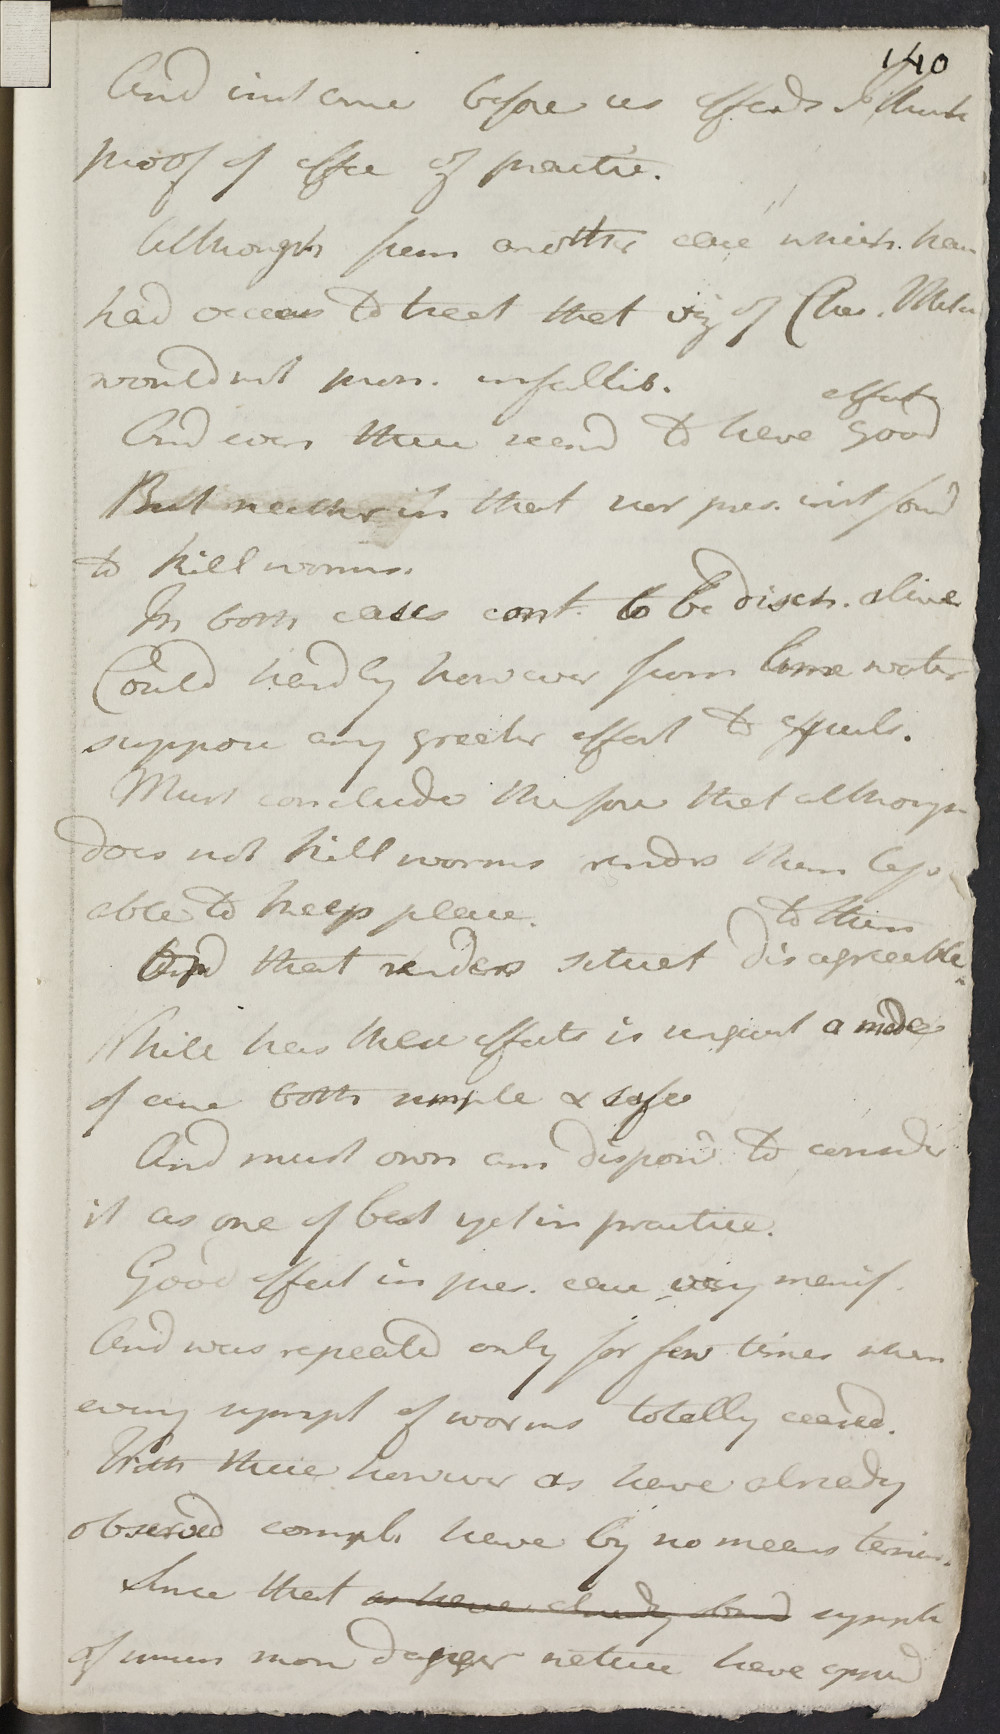 140
And inst came before us affords I think
proof of effec of practic.
Although from another case which have
had occas to treat that viz of Chas.
would not pron. infallib.
effects
And even there seemd to have good
But neither in that nor pres. inst found
to kill worms.
In both cases cont. to be disch. alive
Could hardly however from lime water
suppose any greater effect to
Must conclude therefore that although
does not kill worms renders them less
able to keep place.
to them
And that renders situat disagreeable
While has these effects is a mode
of cure both simple & safe
And must own am dispos'd to consider
it as one of best yet in practice.
Good effect in pres. case very manif.
And was repeated only for few times when
every sympt of worms totally ceased.
With these however as have already
observed compl. have by no means termin.
Since that as have already obsd sympt
of much more danger nature have appeard